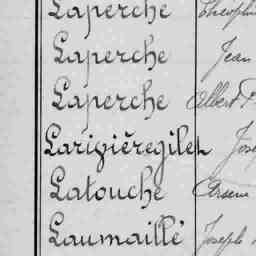 Laperche Théoph
Laperche Jean
Laperche Albert
Larivièregilet Jos
Latouche Arsène
Laumaillé Joseph